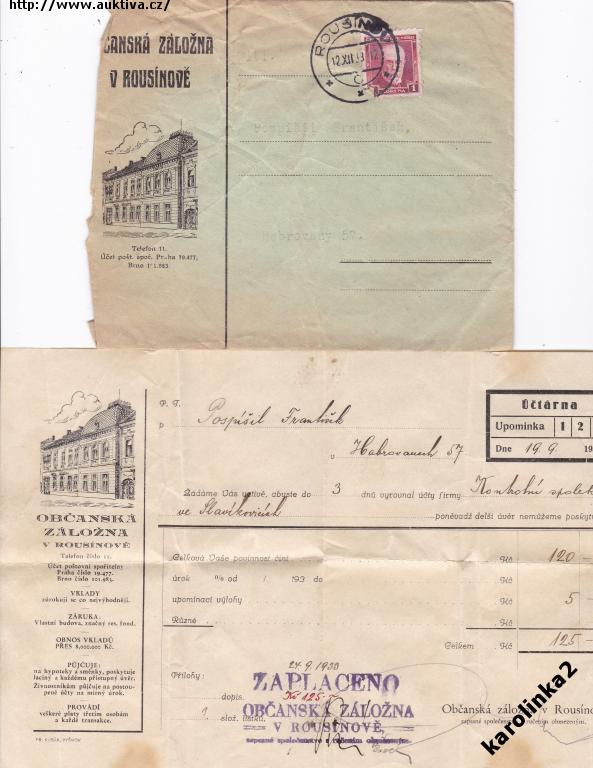 http://www.auktiva.cz/
ČANSKÁ ZÁLOŽNA
V ROUSÍNOVĚ
ROUSÍNOV
12.XII.33
1
Pospíšil František,
Habrovany 57.
Telefon 11.
Účet pošt. spoř. Praha 19.477,
Účtárna
Upomínka 1 2
Dne 19.9. 19
P. T.
p
Pospíšil František
v Habrovanech 57
Žádáme Vás uctivě, abyste do 3 dnů vyrovnal účty firmy Kontrolní spolek
ve Slavíkovicích poněvadž delší úvěr nemůžeme poskyt
OBČANSKÁ
ZÁLOŽNA
V ROUSÍNOVĚ
Telefon číslo 11.
Účet poštovní spořitelny
Praha číslo 19.477.
Brno číslo 101.983.
VKLADY
zúrokují se co nejvýhodněji.
ZÁRUKA:
Vlastní budova, značný res. fond.
OBNOS VKLADŮ
PŘES 8,000.000 Kč.
PŮJČUJE:
na hypoteky a směnky, poskytuje
laciný a každému přístupný úvěr.
Živnostníkům půjčuje na postoupené účty na mírný úrok.
PROVÁDÍ
veškeré platy třetím osobám
a každé transakce.
Celková Vaše povinnost činí Kč 120 -
úrok % od / 193 do Kč
upomínací výlohy Kč 5 -
Různé Kč
Celkem Kč 125 -
24.9.1933
Přílohy:
dopis.
1 slož. lístků.
ZAPLACENO
Kč 125.-
OBČANSKÁ ZÁLOŽNA
V ROUSÍNOVĚ,
zapsané společenstvo s ručením obmezeným.
Občanská záložna v Rousíno
zapsané společenstvo s ručením obmezeným.
karolinka2